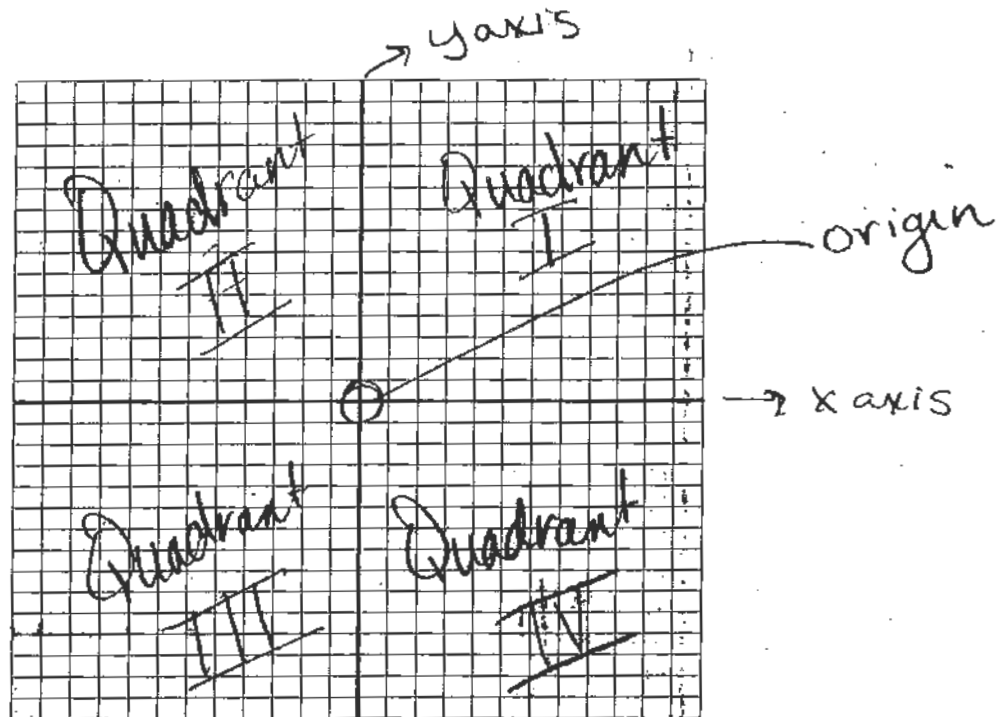 y axis
Quadrant
II
Quadrant
I
origin
x axis
Quadrant
III
Quadrant
IV